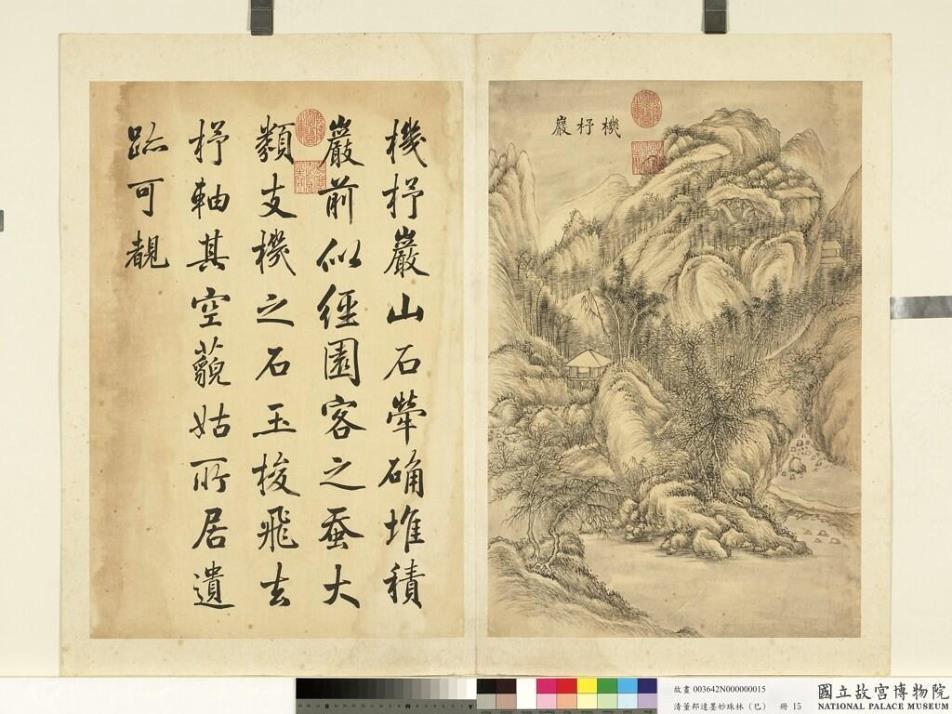 機杼巖
機杼巖山石犖确堆積
巖前似徑園客之蚕大
類支機之石玉梭飛去
杼軸其空藐姑所居遺
跡可覩
故畫 003642N000000015
清董邦達墨妙珠林（巳） 冊 15
國立故宮博物院
NATIONAL PALACE MUSEUM